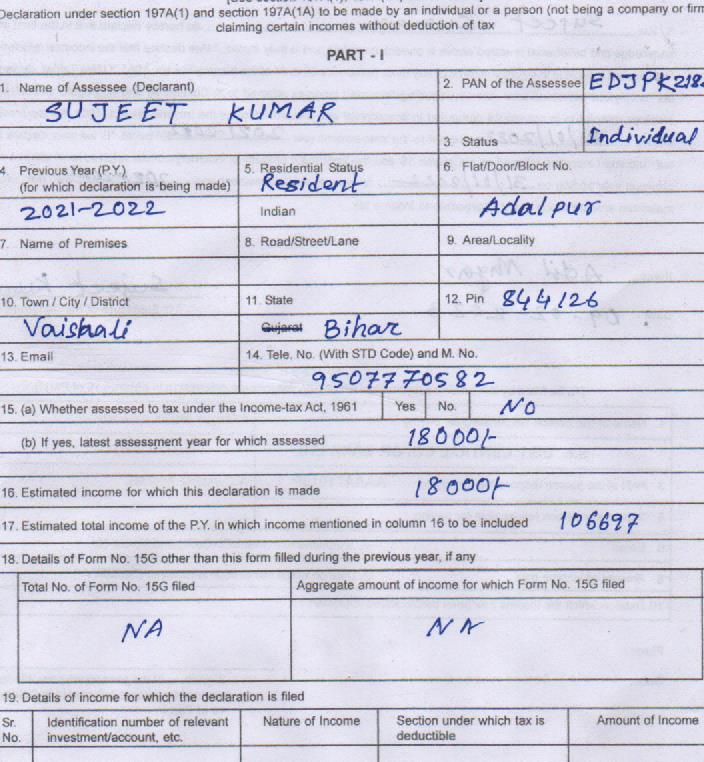 Declaration under section 197A(1) and section 197A(1A) to be made by an individual or a person (not being a company or firm
claiming certain incomes without deduction of tax
PART - I
1. Name of Assessee (Declarant)
SUJEET KUMAR
2. PAN of the Assessee EDJPK218
3. Status Individual
4. Previous Year (P.Y.)
(for which declaration is being made)
2021-2022
5. Residential Status
Resident
Indian
6. Flat/Door/Block No.
Adalpur
7. Name of Premises
8. Road/Street/Lane
9. Area/Locality
10. Town / City / District
Vaishali
11. State
Gujarat Bihar
12. Pin 844126
13. Email
14. Tele. No. (With STD Code) and M. No.
9507770582
15. (a) Whether assessed to tax under the Income-tax Act, 1961 Yes No. NO
(b) If yes, latest assessment year for which assessed 18000/-
16. Estimated income for which this declaration is made 18000/-
17. Estimated total income of the P.Y. in which income mentioned in column 16 to be included 106697
18. Details of Form No. 15G other than this form filled during the previous year, if any
Total No. of Form No. 15G filed
Aggregate amount of income for which Form No. 15G filed
NA
NA
19. Details of income for which the declaration is filed
Sr.
No.
Identification number of relevant
investment/account, etc.
Nature of Income
Section under which tax is
deductible
Amount of Income